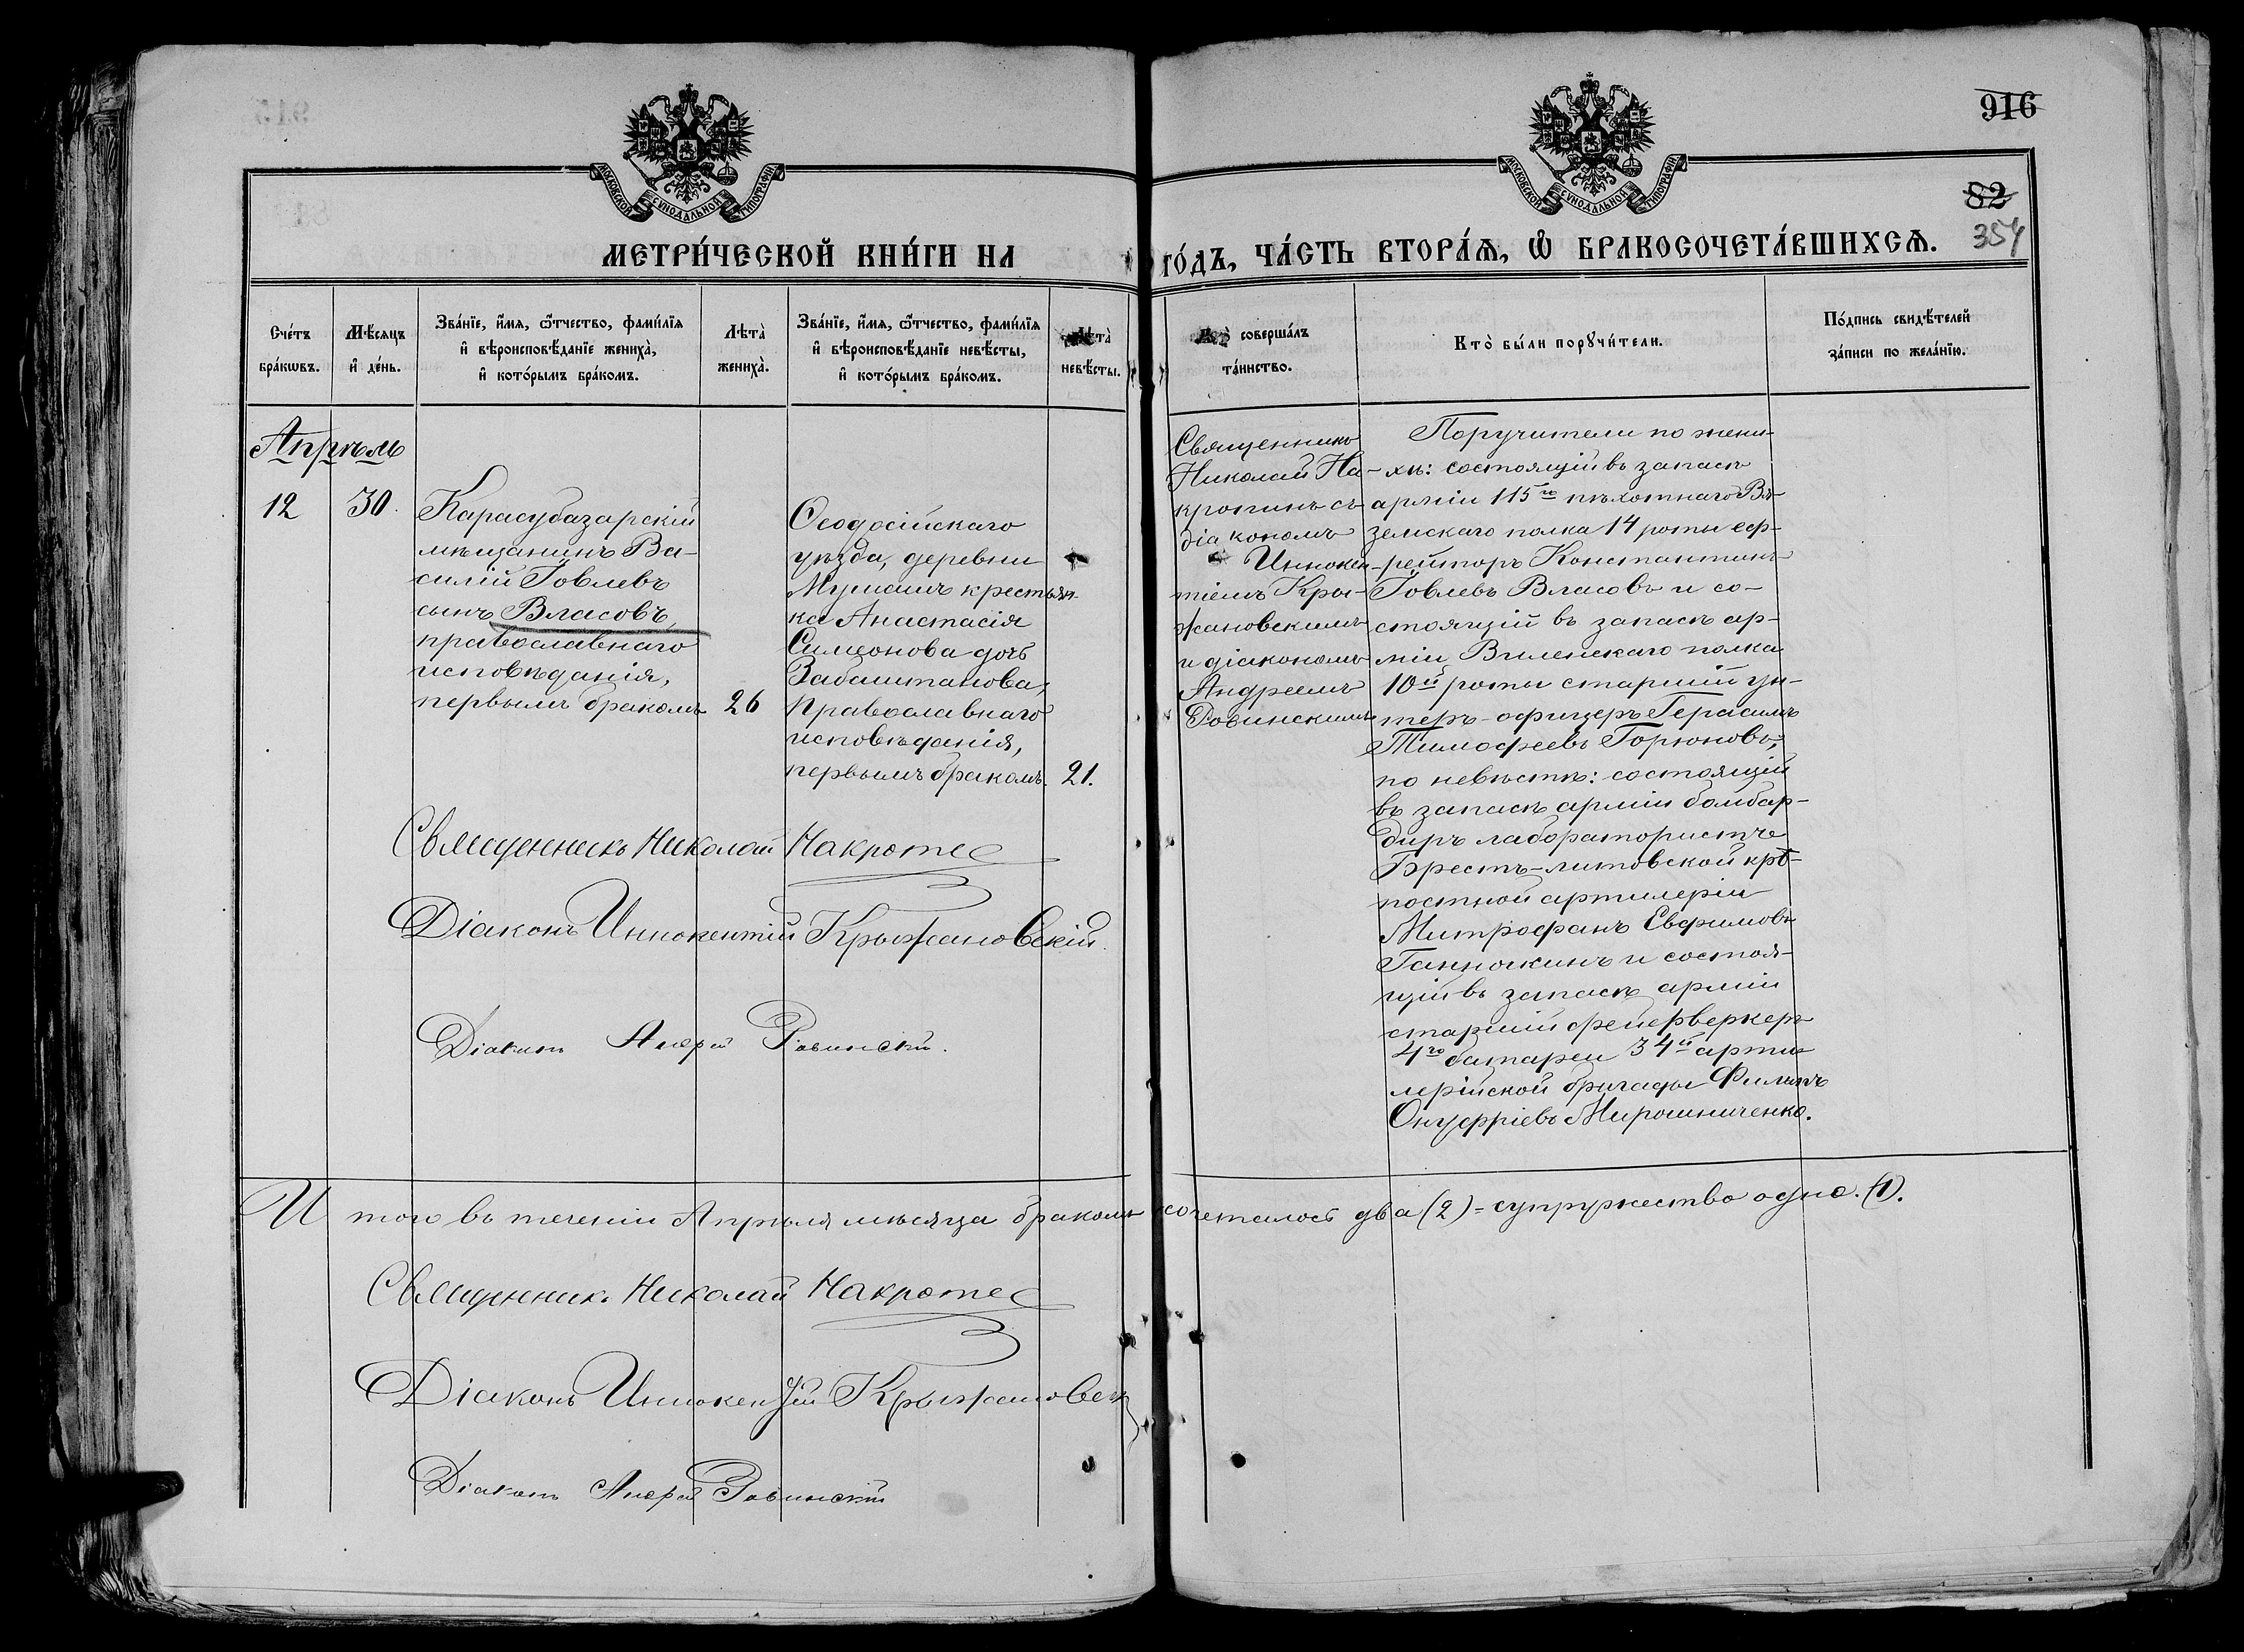 916
82
354
МОСКОВСКОЙ СУНОДАЛЬНОЙ ТИПОГРАФІИ
МОСКОВСКОЙ СУНОДАЛЬНОЙ ТИПОГРАФІИ
МЕТРИ́ЧЕСКОЙ КНИ́ГИ НА
ГО́ДЪ, ЧА́СТЬ ВТОРА́Ѧ, Ѽ БРАКОСОЧЕТА́ВШИХСѦ.
Сче́тъ
бра́кѡвъ.
Мѣ́сѧцъ
и҆ де́нь.
Зва́нїе, и҆́мѧ, ѻ҆́тчество, фами́лїѧ
и҆ вѣроисповѣ́данїе жениха̀,
и҆ кото́рымъ бра́комъ.
Лѣта̀
жениха̀.
Зва́нїе, и҆́мѧ, ѻ҆́тчество, фами́лїѧ
и҆ вѣроисповѣ́данїе невѣ́сты,
и҆ кото́рымъ бра́комъ.
Лѣта̀
невѣ́сты.
Кто̀ соверша́лъ
та́инство.
Кто̀ бы́ли порꙋчи́тели.
По́дпись свидѣ́телей
за́писи по жела́нїю.
Апрѣль
12
30.
Карасубазарскій
мѣщанинъ Ва-
силій Іовлевъ
сынъ Власовъ,
православнаго
исповѣданія,
первымъ бракомъ
26
Ѳеодосійскаго
уѣзда, деревни
крестьян-
ка Анастасія
Симеонова дочь
Забаштанова,
православнаго
исповѣданія,
первымъ бракомъ.
21.
Священникъ
Николай На-
кропинъ съ
діакономъ
Иннокен-
тіемъ Кры-
жановскимъ
и діакономъ
Андреемъ
Ровинскимъ
Поручители по жени-
хѣ: состоящій въ запасѣ
арміи 115го пѣхотнаго Вя-
земскаго полка 14 роты еф-
рейторъ Константинъ
Іовлевъ Власовъ и со-
стоящій въ запасѣ ар-
міи Виленскаго полка
10й роты старшій ун-
теръ-офицеръ Герасимъ
Тимофеевъ Горюновъ;
по невѣстѣ: состоящій
въ запасѣ арміи бомбар-
диръ лаборатористъ
Брестъ-литовской крѣ-
постной артилеріи
Митрофанъ Евфимовъ
Ганночкинъ и состоя-
щій въ запасѣ арміи
старшій фейерверкеръ
4го батареи 34й арти-
лерійской бригады Филиппъ
Онуфріевъ Мирошниченко.
Священникъ Николай
Діаконъ Иннокентій Крыжановскій.
Діаконъ Андрей Ровинскій.
Итого въ теченіи Апрѣля мѣсяца бракомъ сочеталось два (2) = супружество одно. (1).
Священникъ Николай
Діаконъ Иннокентій Крыжановскій
Діаконъ Андрей Ровинскій